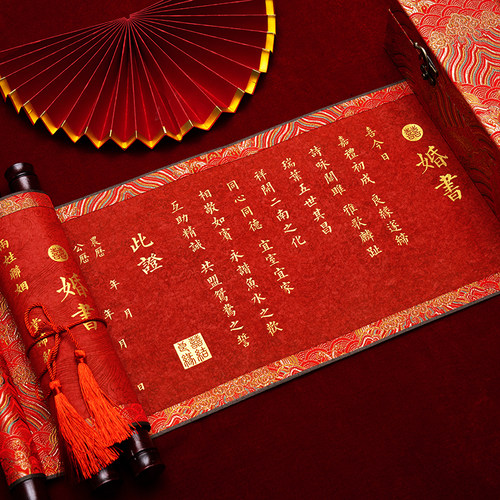 婚書
喜今日
嘉禮初成 良緣遂締
詩咏關雎 雅歌麟趾
瑞葉五世其昌
祥開二南之化
同心同德 宜室宜家
相敬如賓 永諧魚水之歡
互助精誠 共盟鴛鴦之誓
此證
農歷 年 月 日
公歷 年 月 日
婚書
兩姓聯姻